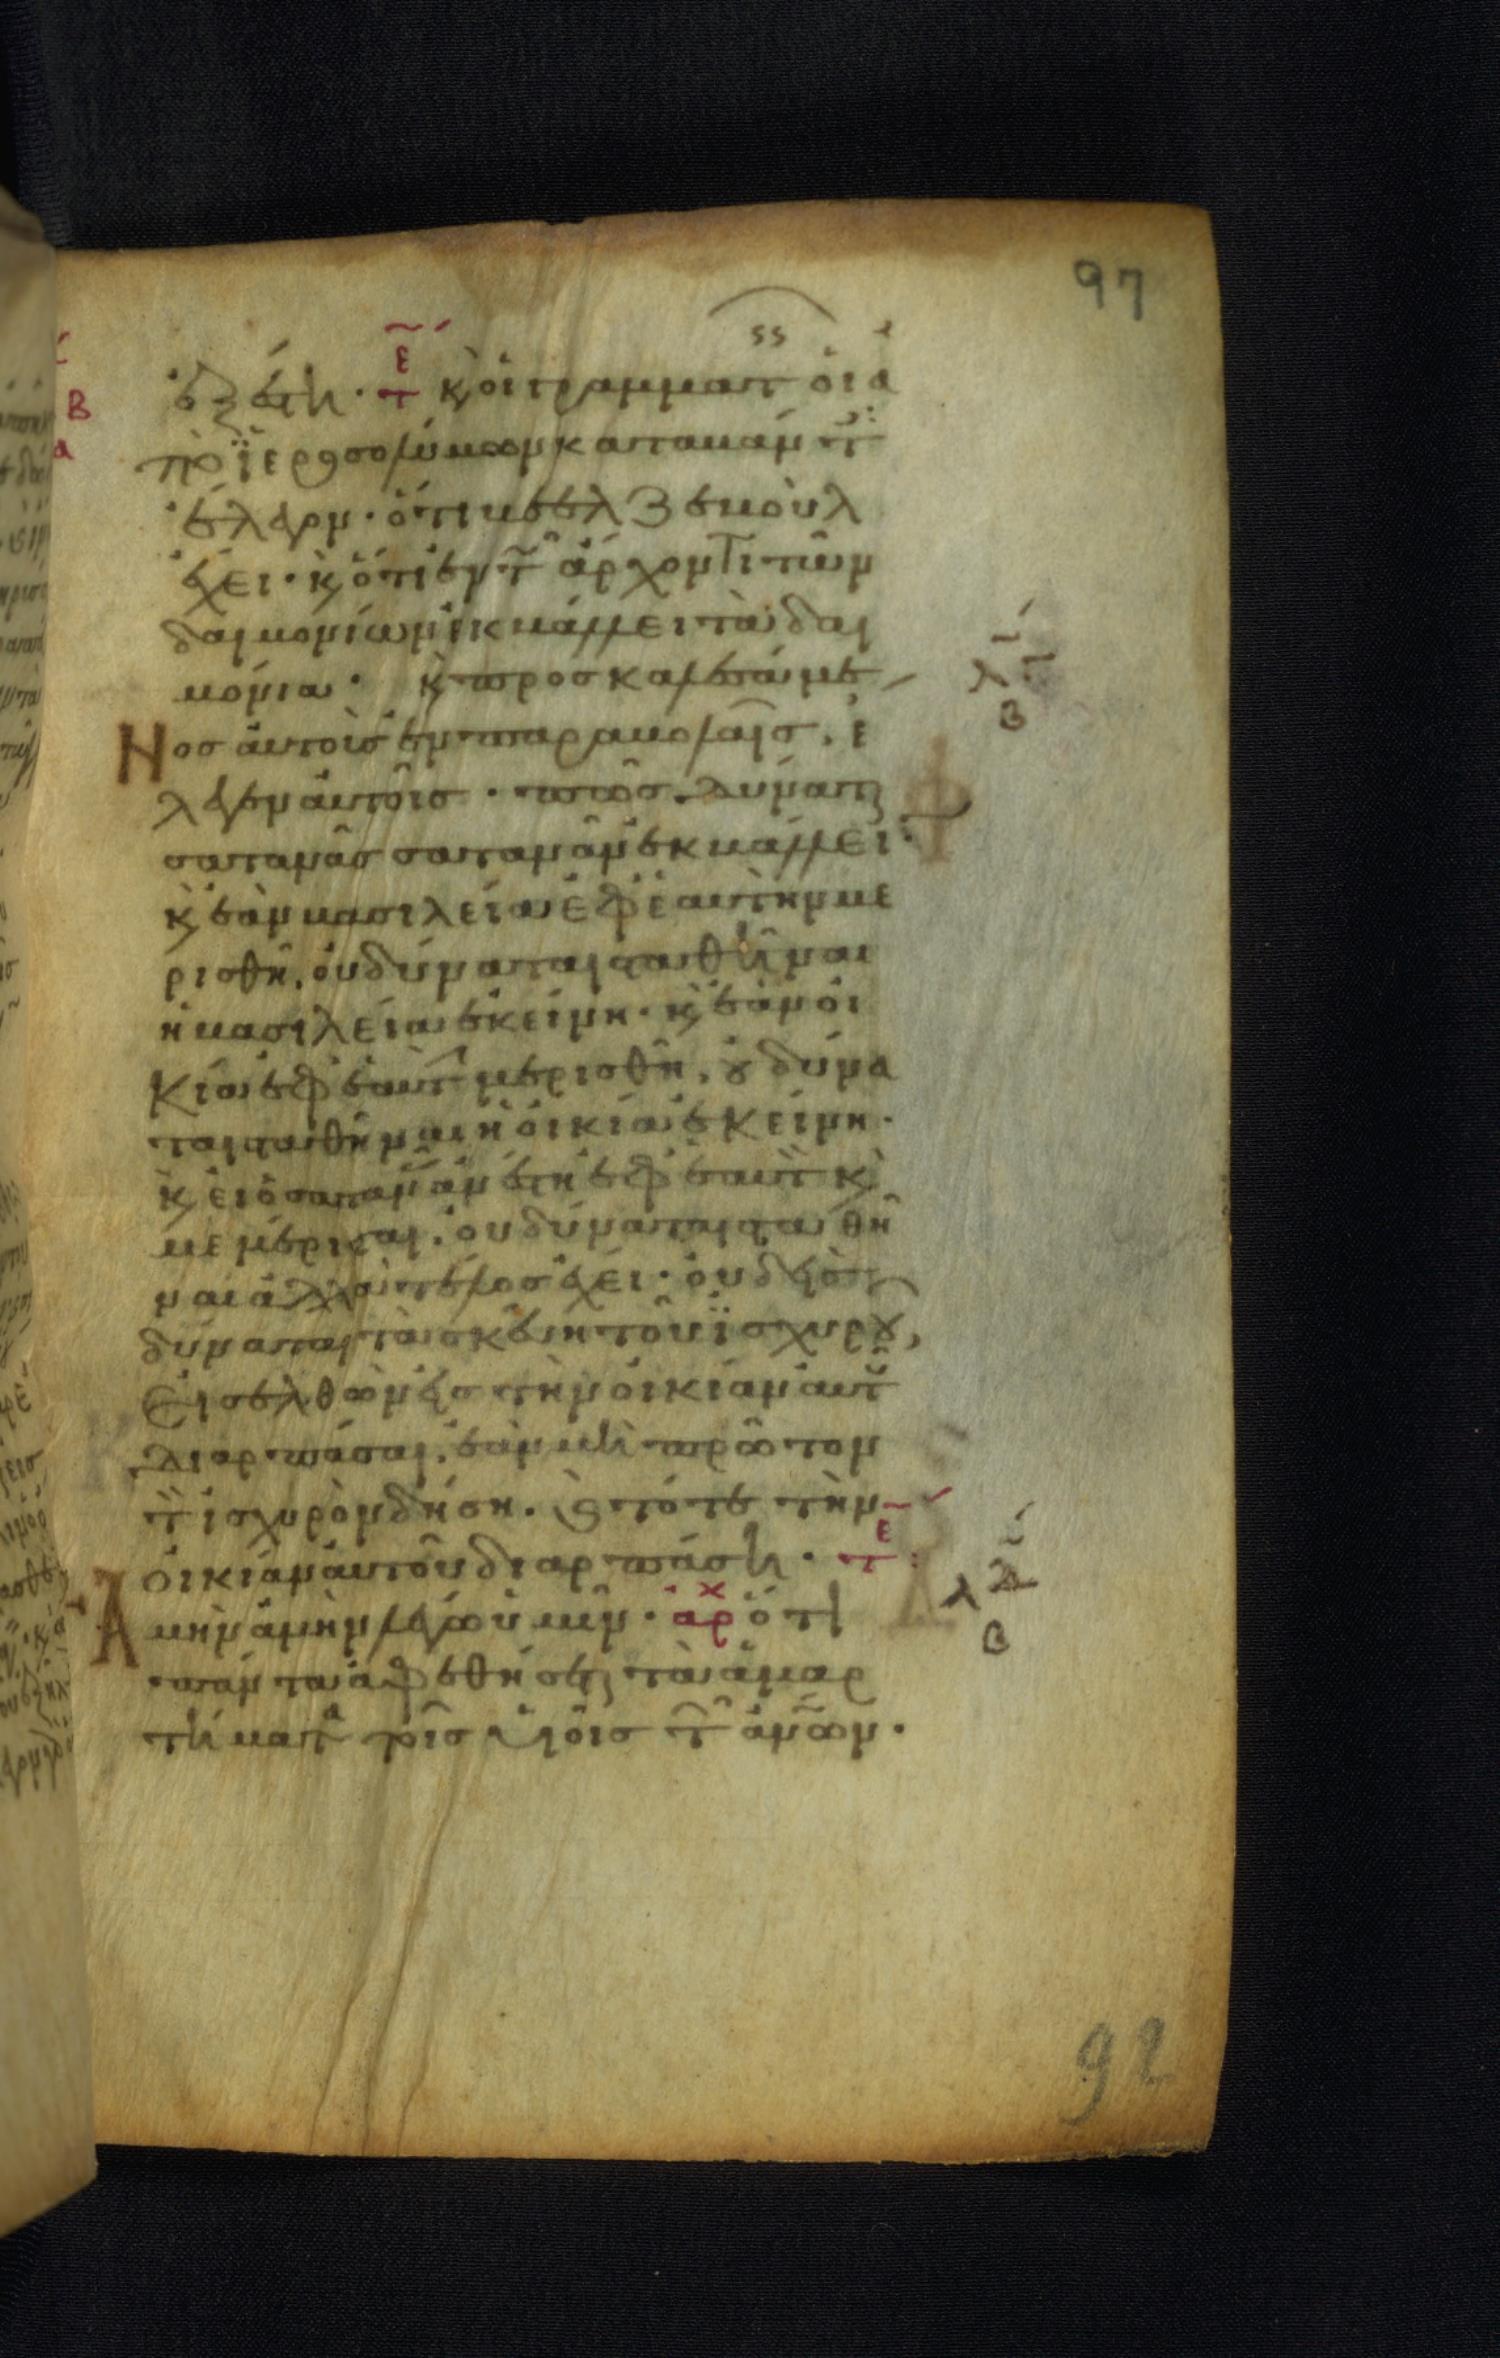 97
ἐξέστη · τε κ οἱ γραμματ οἱ ἀ
πὸ ἱεροσολύμων καταβάντ
ἔλεγον · ὅτι βεελζεβοὺλ
ἔχει · κ ὅτι ἐν τῶ ἄρχοντι τῶν
δαιμονίων ἐκβάλλει τὰ δαι
μόνια · κ προσκαλεσάμε
νοσ αὐτοὺσ ἐν παραβολαῖσ · ἔ
λεγεν αὐτοῖσ · πῶσ δύναται
σατανᾶσ σατανᾶν ἐκβάλλει ·
κ ἐὰν βασιλεία ἐφ ἑαυτὴν με
ρισθῆ, οὐ δύναται σταθῆναι
ἡ βασιλεία ἐκείνη · κ ἐὰν οἰ
κία ἐφ ἑαυτ μερισθῆ, οὐ δύνα
ται σταθῆναι ἡ οἰκία ἐκείνη ·
κ εἰ ὁ σαταν ἀνέστη ἐφ ἑαυτ κ
μεμέρισται · οὐ δύναται σταθῆ
ναι ἀλλὰ τέλοσ ἔχει · οὐδεὶσ
δύναται τὰ σκεύη τοῦ ἰσχυροῦ,
εἰσελθὼν εἰσ τὴν οἰκίαν αὐτοῦ
διαρπάσαι, ἐὰν μὴ πρῶτον
τ ἰσχυρὸν δήση · κ τότε τὴν
οἰκίαν αὐτοῦ διαρπάση · τε
λδ
β
ἀμὴν ἀμὴν λέγω ὑμῖν · ἀρχ ὅτι
πάντα ἀφεθήσεται τὰ ἁμαρ
τήματα τοῖσ υἱοῖσ τῶ ἀνων ·
92